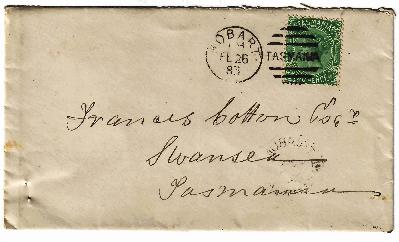 HOBART
FE 26
83
TASMANIA
TASMANIA
Francis Cotton Esqre
Swansea
Tasmania